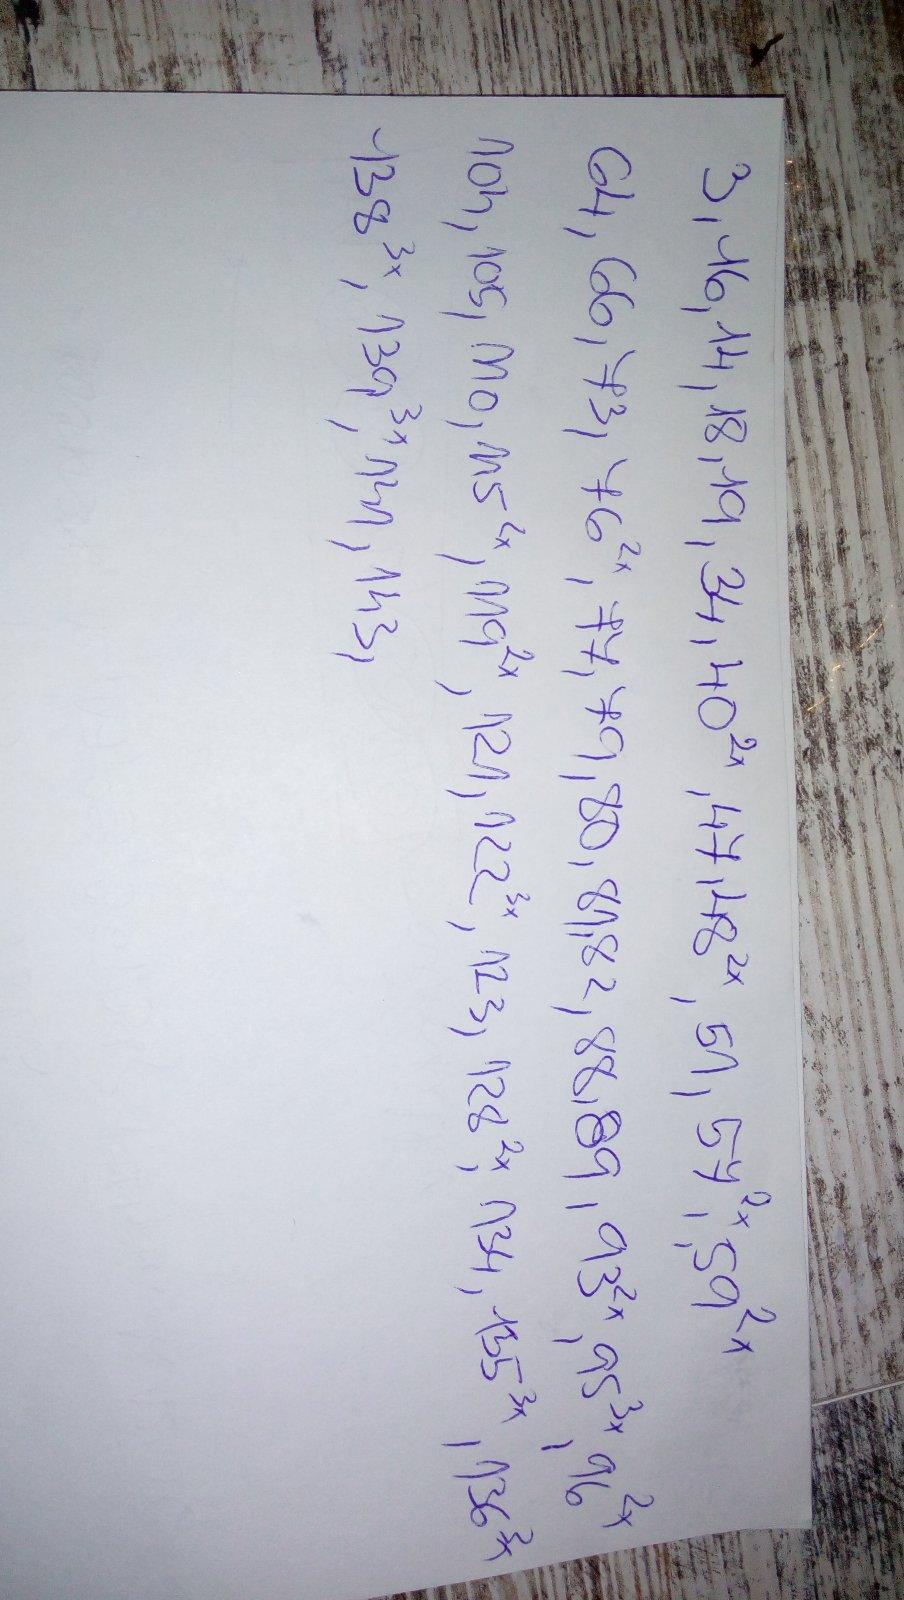 3, 16, 14, 18, 19, 34, 40 2x, 47, 48 2x, 51, 57 2x, 59 2x
64, 66, 73, 76 2x, 77, 79, 80, 81, 82, 88, 89, 93 2x, 95 3x, 96 2x
104, 105, 110, 115 2x, 119 2x, 121, 122 3x, 123, 128 2x, 134, 135 3x, 136 3x
138 3x, 139 3x, 141, 143,